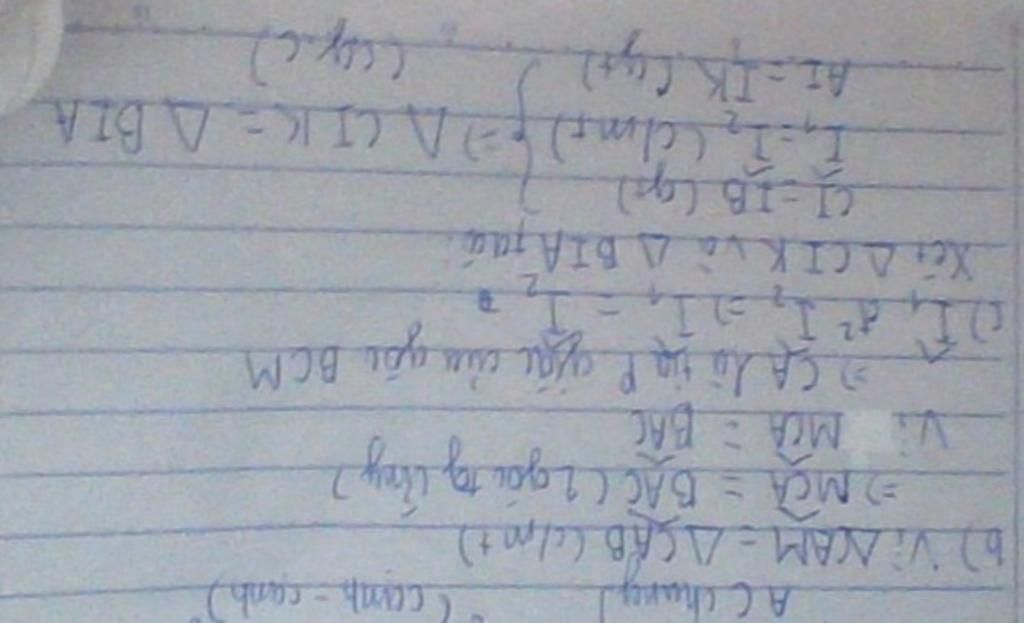 A C chung } (cạnh - cạnh)
b) Vì △CAM = △CAB (c/m t)
=> MCA = BAC (2 góc tg ứng)
Vì MCA = BAC
=> CA là tia P giác của góc BCM
c) I1 đ² I2 => I1 = I2
Xét △CIK và △BIA, ta có
CI = IB (gt)
I1 = I2 (c/m t) } => △CIK = △BIA
AI = IK (gt) (cgc)